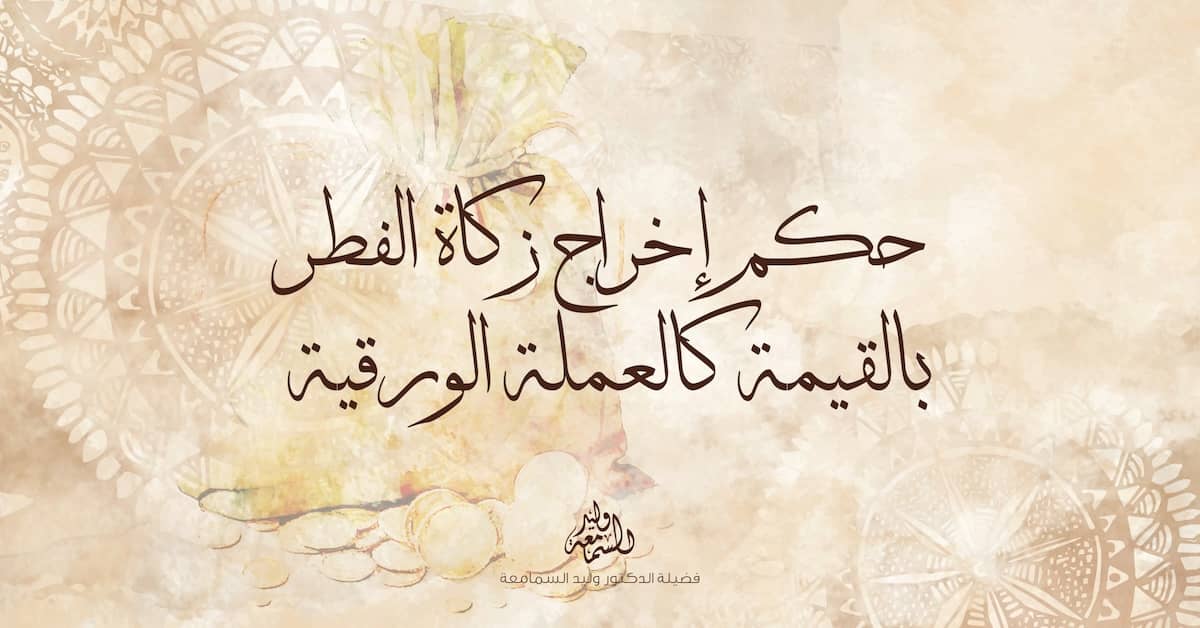 حكم إخراج زكاة الفطر
بالقيمة كالعملة الورقية
وليد
السمامعة
فضيلة الدكتور وليد السمامعة